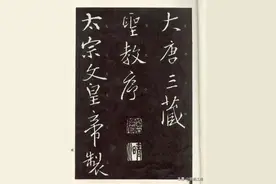 大唐三藏
聖教序
太宗文皇帝製